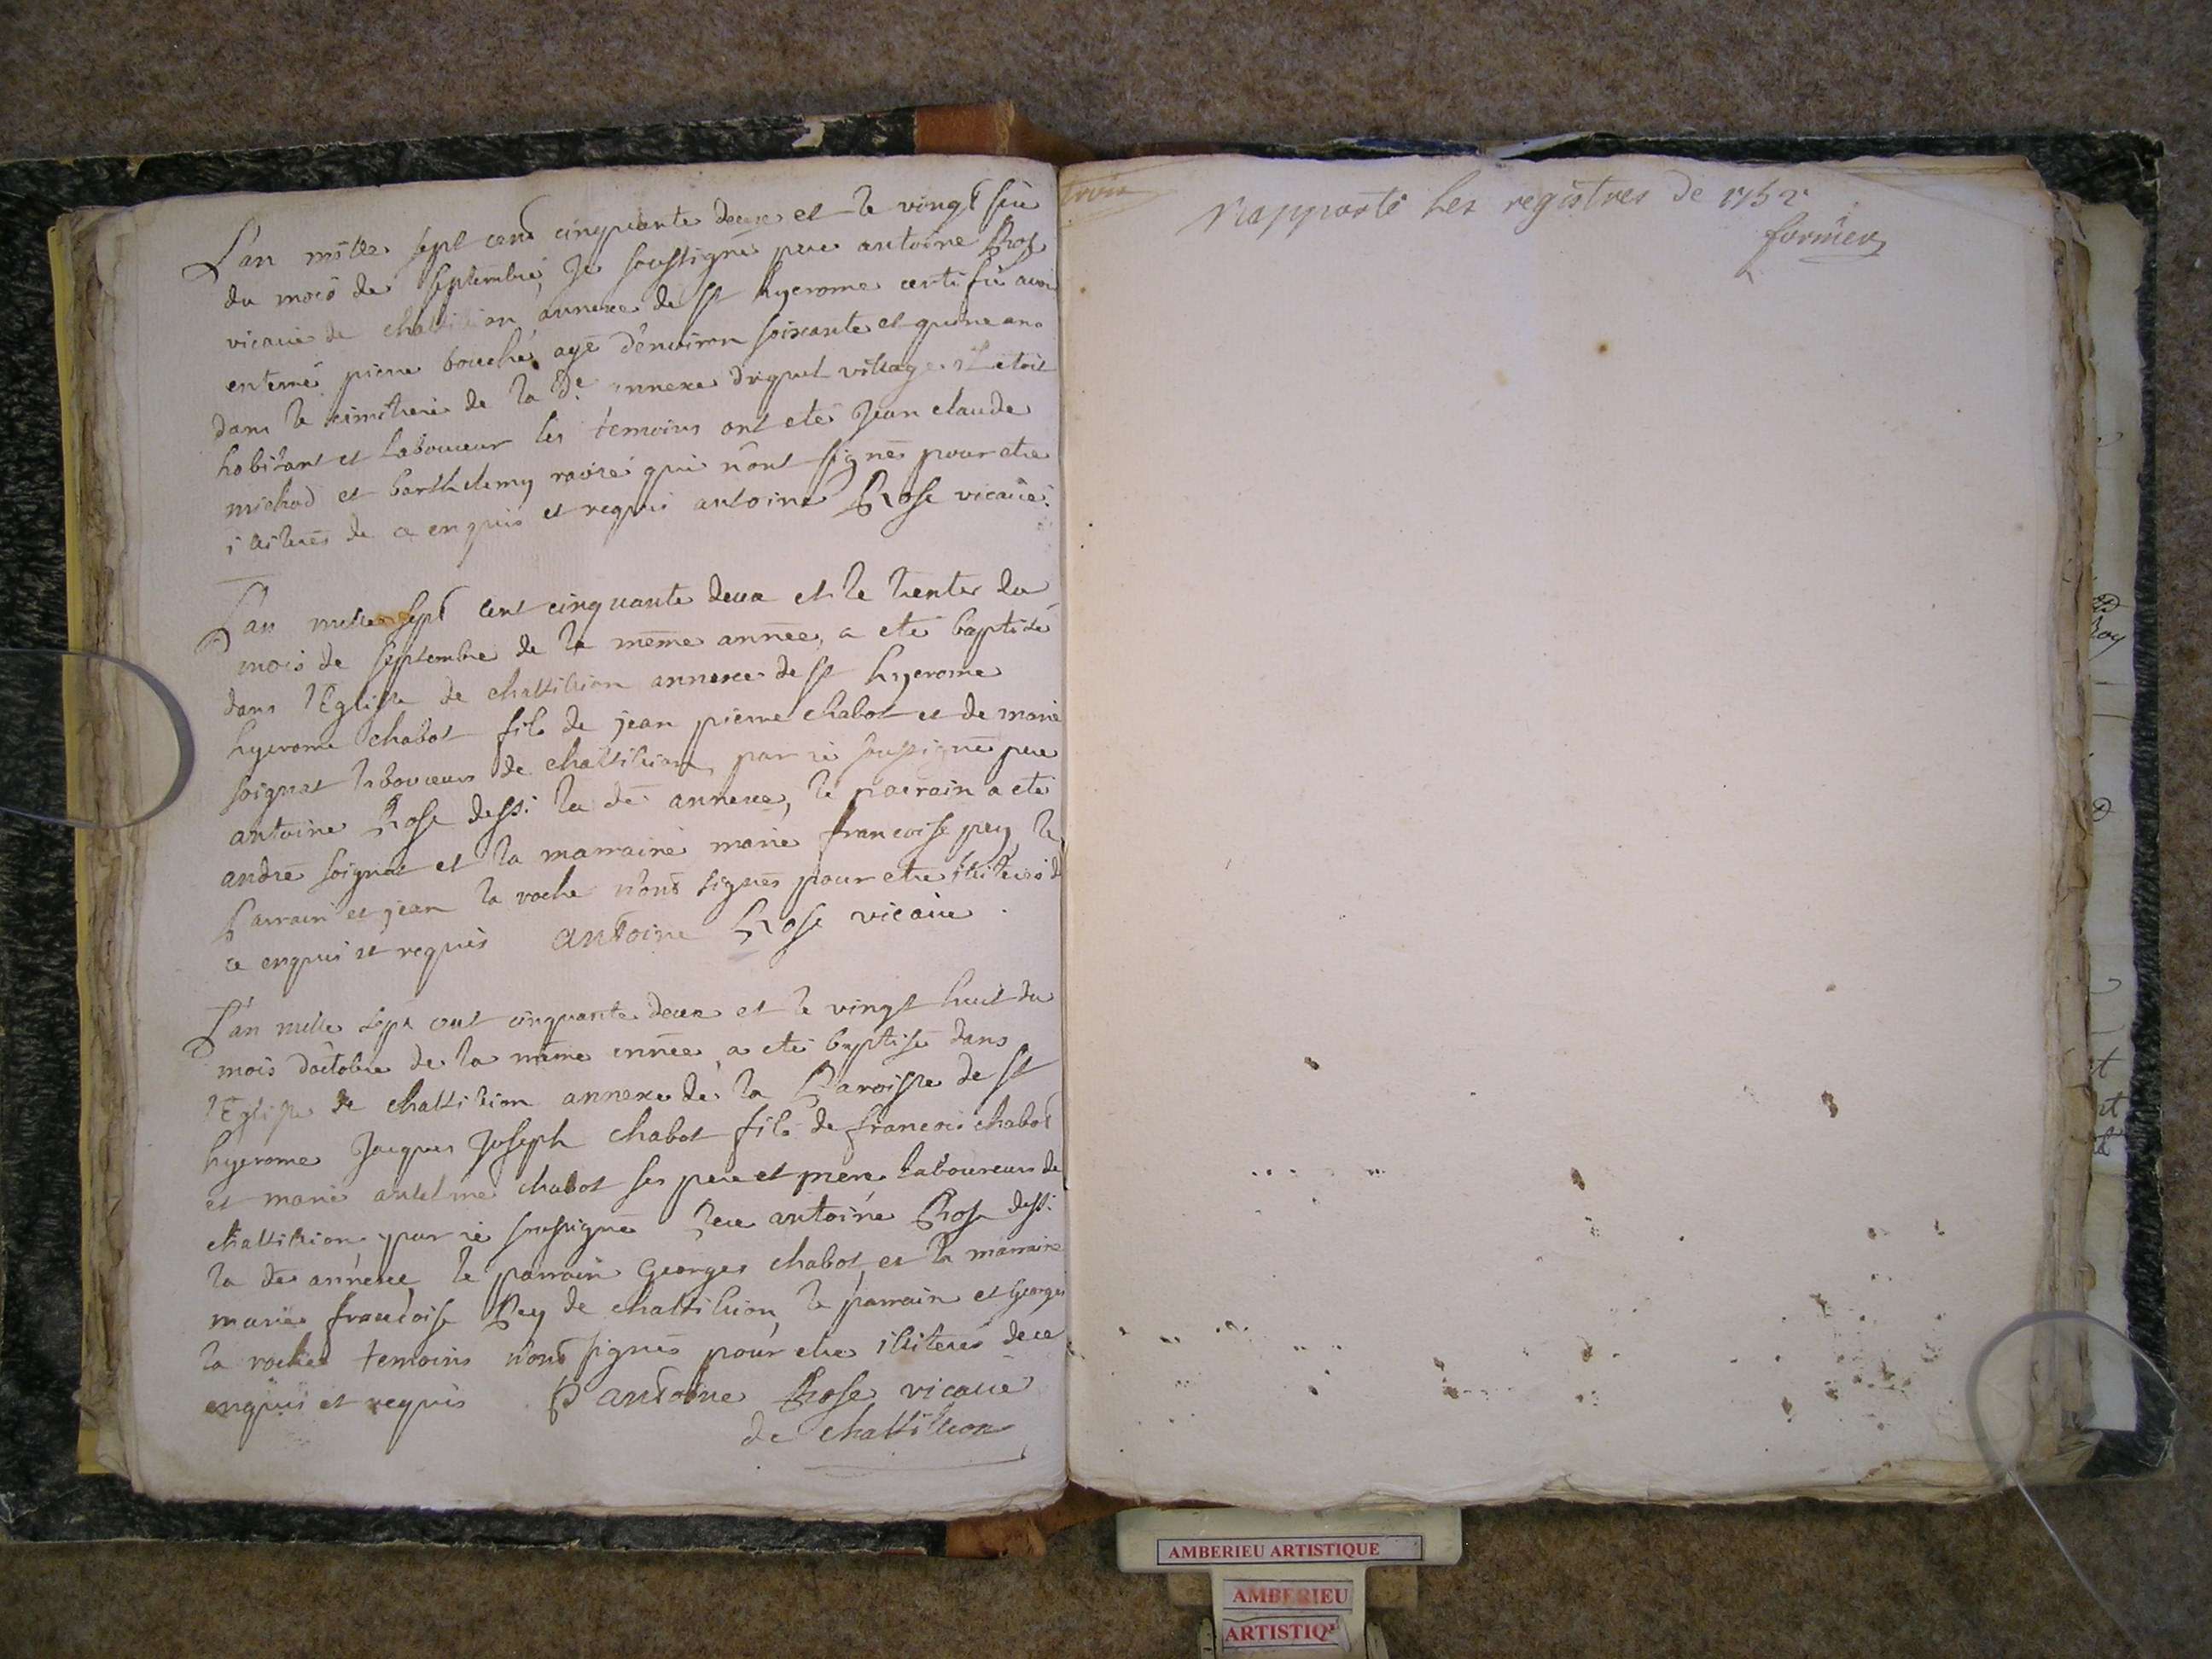 L'an mille sept cent cinquante deux et le vingt six
du mois de septembre, Je soussigné pere antoine Rose
vicaire de chattillion annexe de st hyerome certifie avoir
enterré pierre bouché agé d'environ soixante et quine ans
dans le cimitiere de la de. annexe duquel village il etoit
habitant et laboureur les temoins ont eté Jean claude
michod et barthelemy ravire qui n'ont signés pour etre
illiterés de ce enquis et requis antoine Rose vicaire.
L'an mille sept cent cinquante deux et le trente du
mois de septembre de la même année, a eté baptisé
dans l'Eglise de chattillion annexe de st hyerome
hyerome chabot fils de jean pierre chabot et de marie
soignat laboureurs de chattillion, par ie soussigné pere
antoine Rose dessi. la de annexe, le parrain a eté
andré soignat et la marraine marie francoise pey, le
parrain et jean la roche n'ont signés pour etre illiterés de
ce enquis et requis antoine Rose vicaire.
L'an mille sept cent cinquante deux et le vingt huit du
mois d'octobre de la même année, a eté baptisé dans
l'Eglise de chattillion annexe de la Paroisse de st
hyerome Jacques Joseph chabot fils de francois chabot
et marie antelme chabot ses pere et mere laboureurs de
chattillion, par ie soussigné Pere antoine Rose dessi.
la de annexe, le parrain Georges chabot, et la marraine
marie francoise Pey de chattillion, le parrain et Georges
la roche temoins n'ont signés pour etre illiterés de ce
enquis et requis P antoine Rose vicaire
de chattillion
trois
Rapporté les registres de 1752
AMBERIEU ARTISTIQUE
AMBERIEU
ARTISTIQ